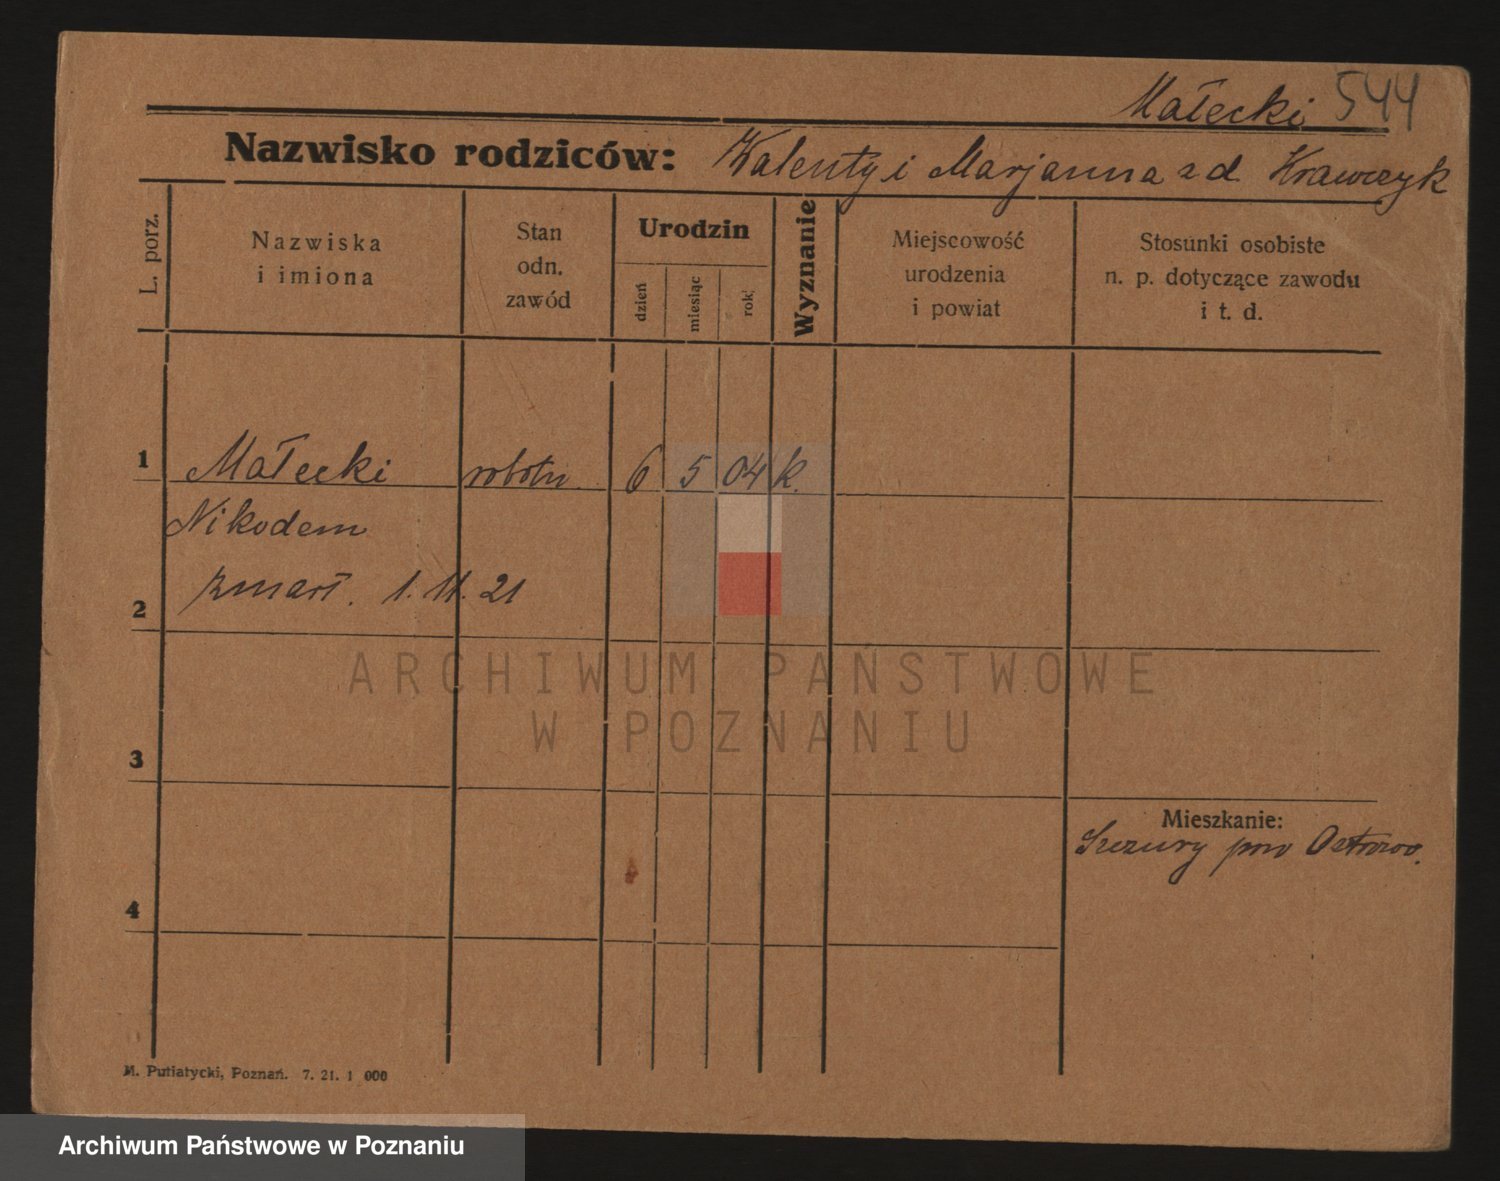 Małecki 544
Nazwisko rodziców: Walenty i Marjanna z d. Krawczyk
L. porz.
Nazwiska
i imiona
Stan
odn.
zawód
Urodzin
dzień
miesiąc
rok
Wyznanie
Miejscowość
urodzenia
i powiat
Stosunki osobiste
n. p. dotyczące zawodu
i t. d.
1 Małecki robotn 6 5 04 k.
Nikodem
2 zmarł. 1. 11. 21
ARCHIWUM PAŃSTWOWE
W POZNANIU
3
Mieszkanie:
Szczury pow Ostrow.
4
M. Putiatycki, Poznań. 7. 21. 1 000
Archiwum Państwowe w Poznaniu